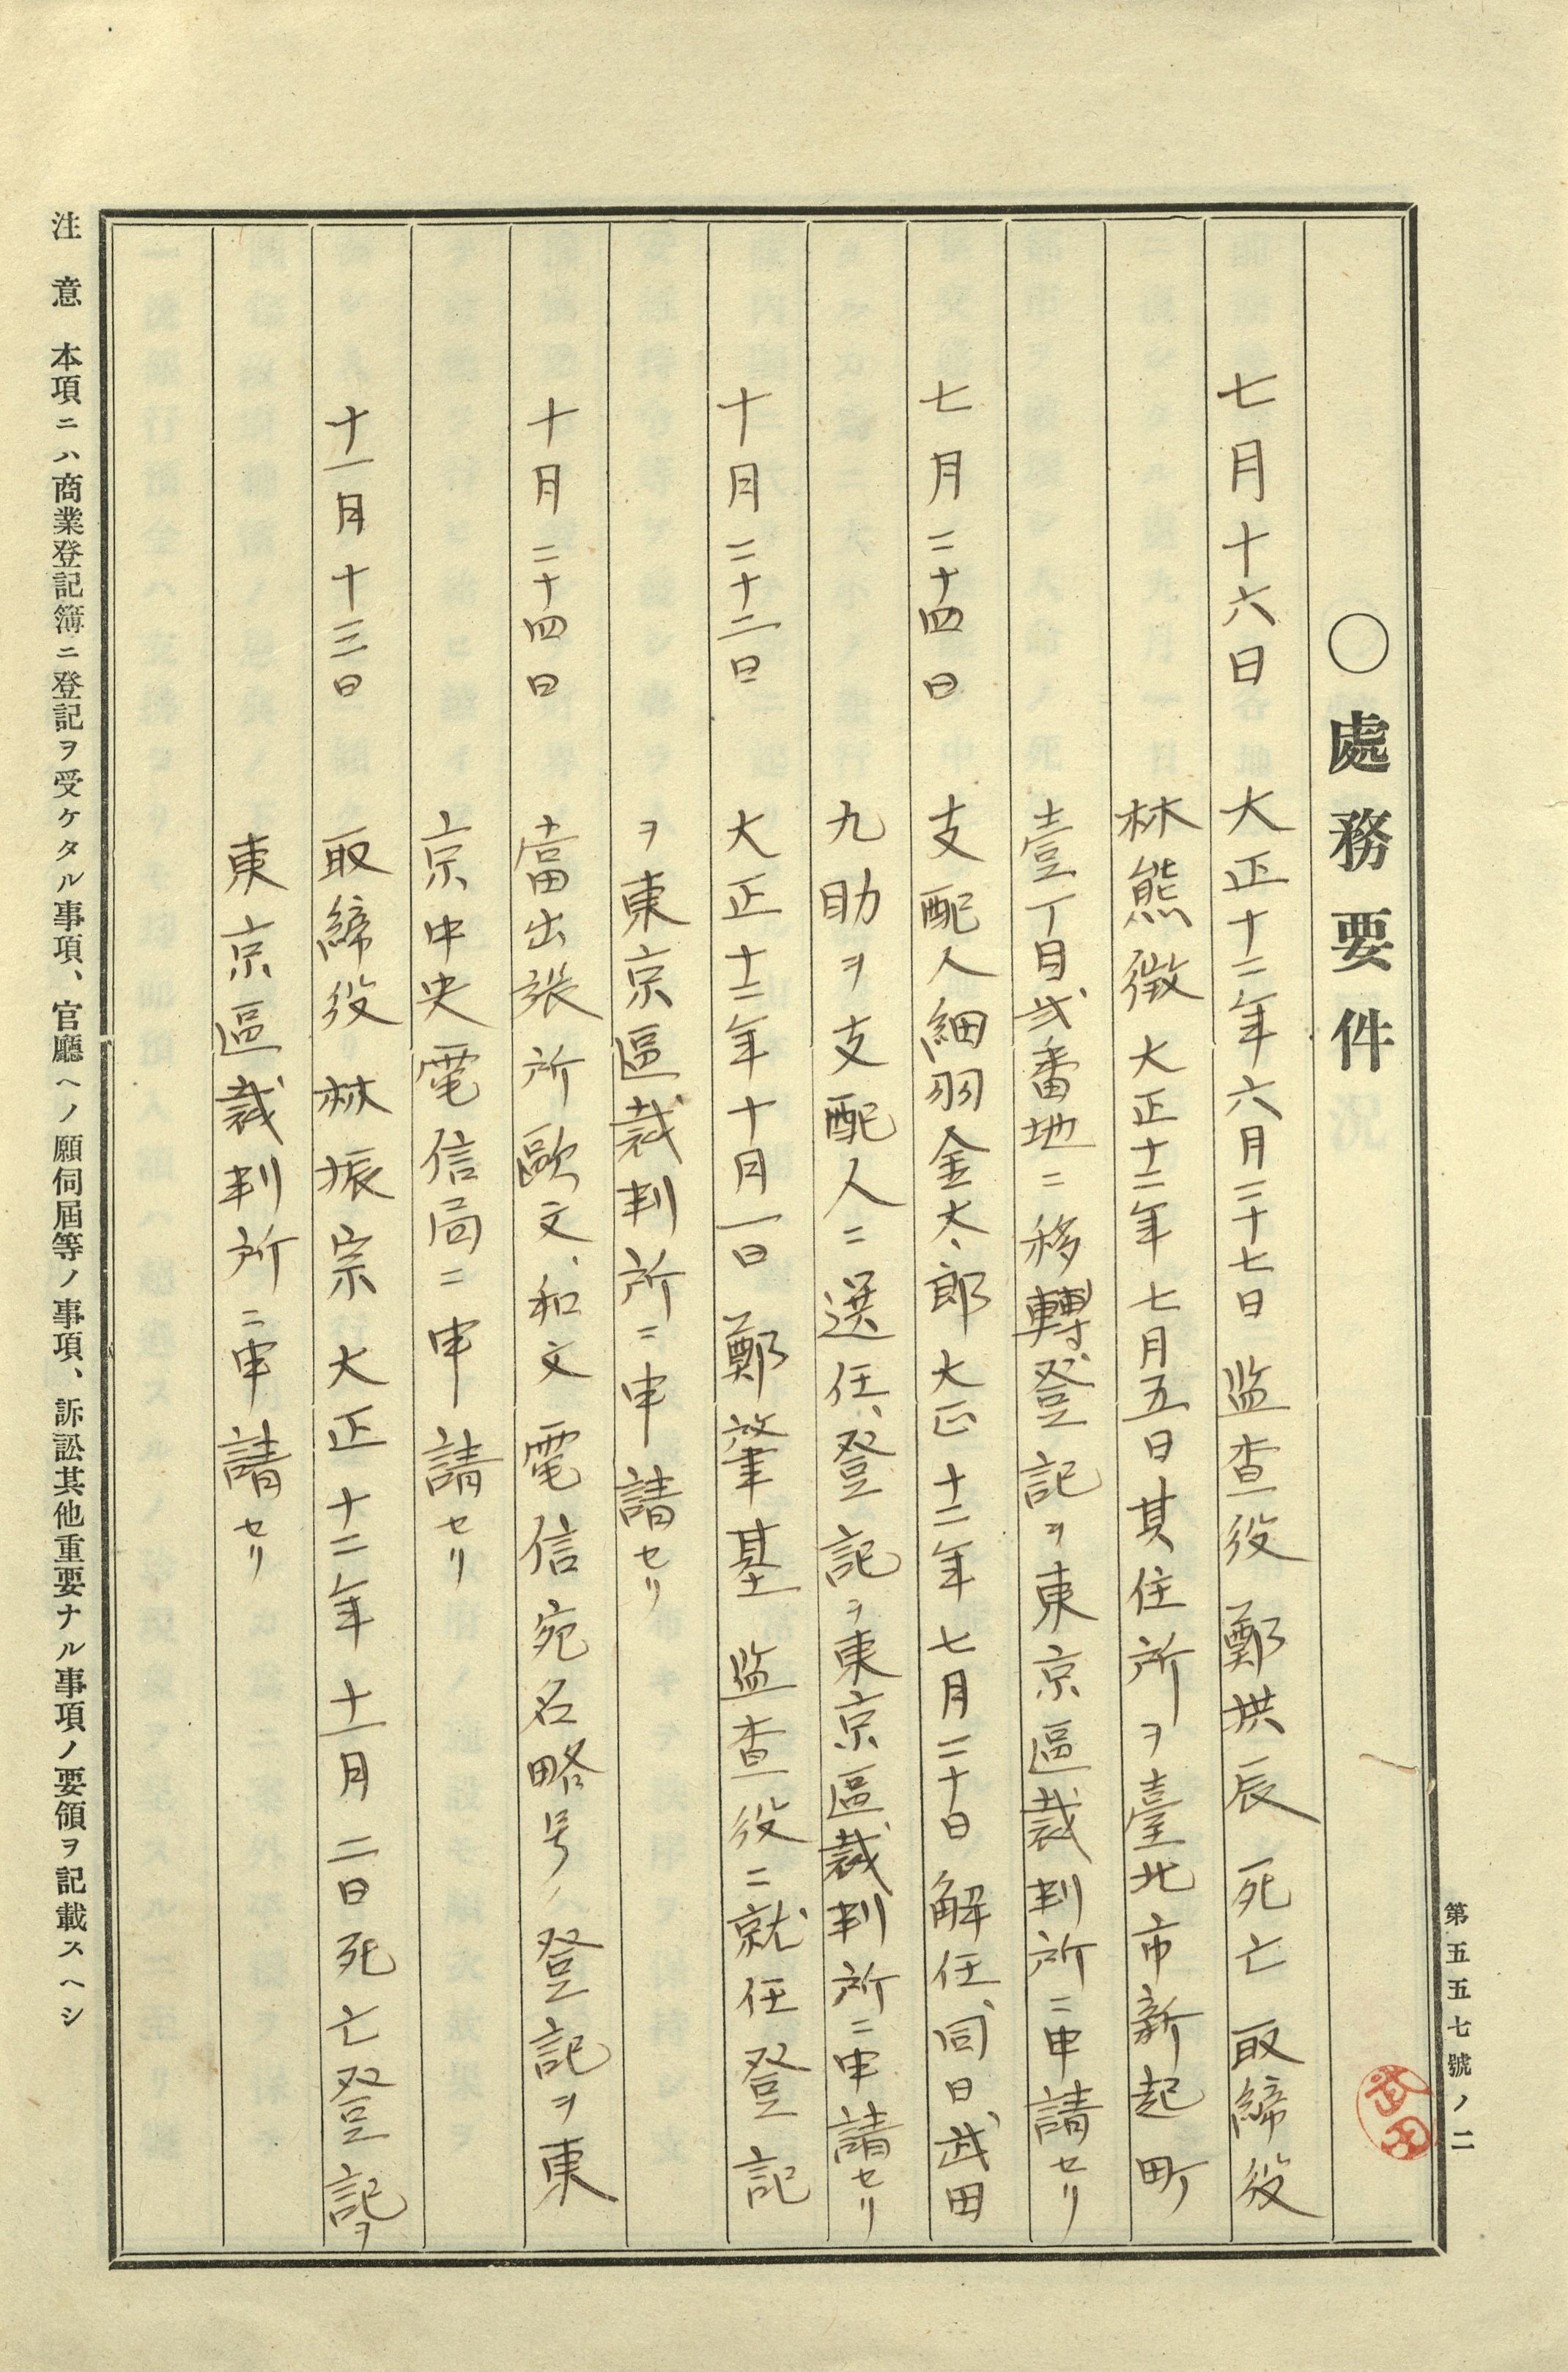 第五五七號ノ二
○處務要件
武田
七月十六日 大正十二年六月二十七日 監査役 鄭拱辰 死亡 取締役
林熊徴 大正十二年七月五日其住所ヲ臺北市新起町
壹丁目弍番地ニ移轉登記ヲ東京區裁判所ニ申請セリ
七月二十四日 支配人細羽金太郎 大正十二年七月二十日 解任、同日、武田
九助ヲ支配人ニ選任、登記ヲ東京區裁判所ニ申請セリ
十月二十二日 大正十二年十月一日 鄭肇基 監査役ニ就任登記
ヲ東京區裁判所ニ申請セリ
十月二十四日 當出張所歐文、和文電信宛名略号ノ登記ヲ東
京中央電信局ニ申請セリ
十一月十三日 取締役林振宗 大正十二年十一月二日死亡登記ヲ
東京區裁判所ニ申請セリ
注意 本項ニハ商業登記簿ニ登記ヲ受ケタル事項、官廳ヘノ願伺屆等ノ事項、訴訟其他重要ナル事項ノ要領ヲ記載スヘシ